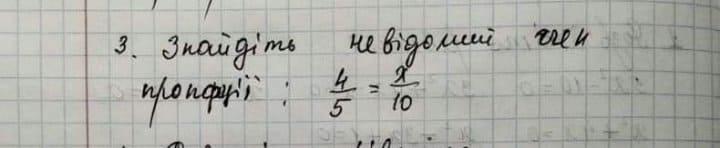 3. Знайдіть невідомий член
пропорції : 4/5 = x/10